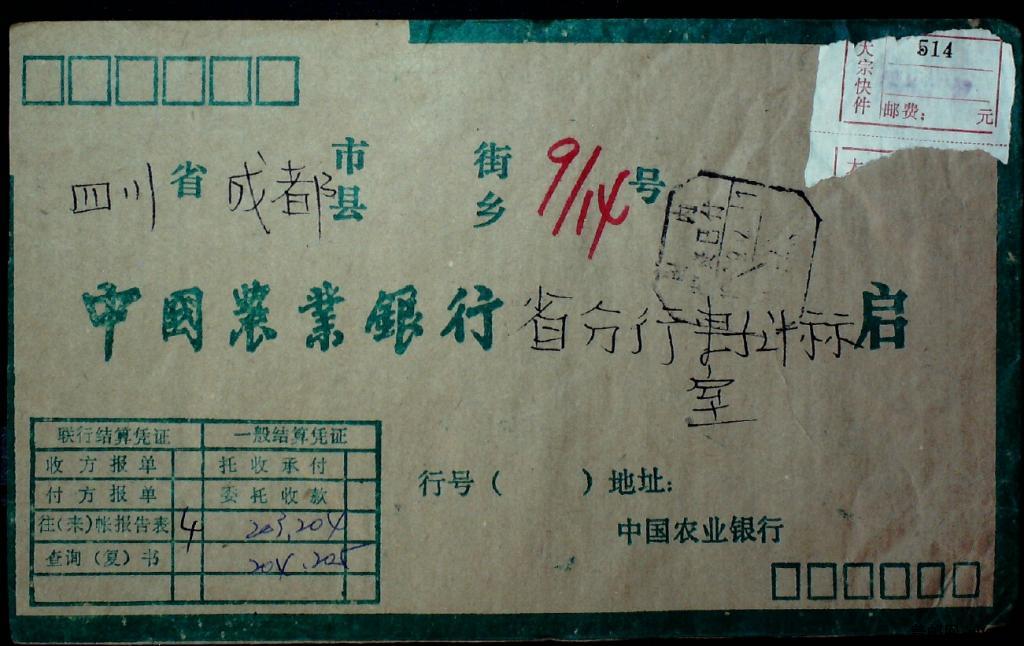 大宗快件
514
邮费: 元
四川省 成都 市县 街乡 9/14 号
中國農業銀行 省分行 启
室
联行结算凭证 一般结算凭证
收方报单 托收承付
付方报单 委托收款
往(来)帐报告表 4 203,204
查询(复)书 204.205
行号( )地址:
中国农业银行